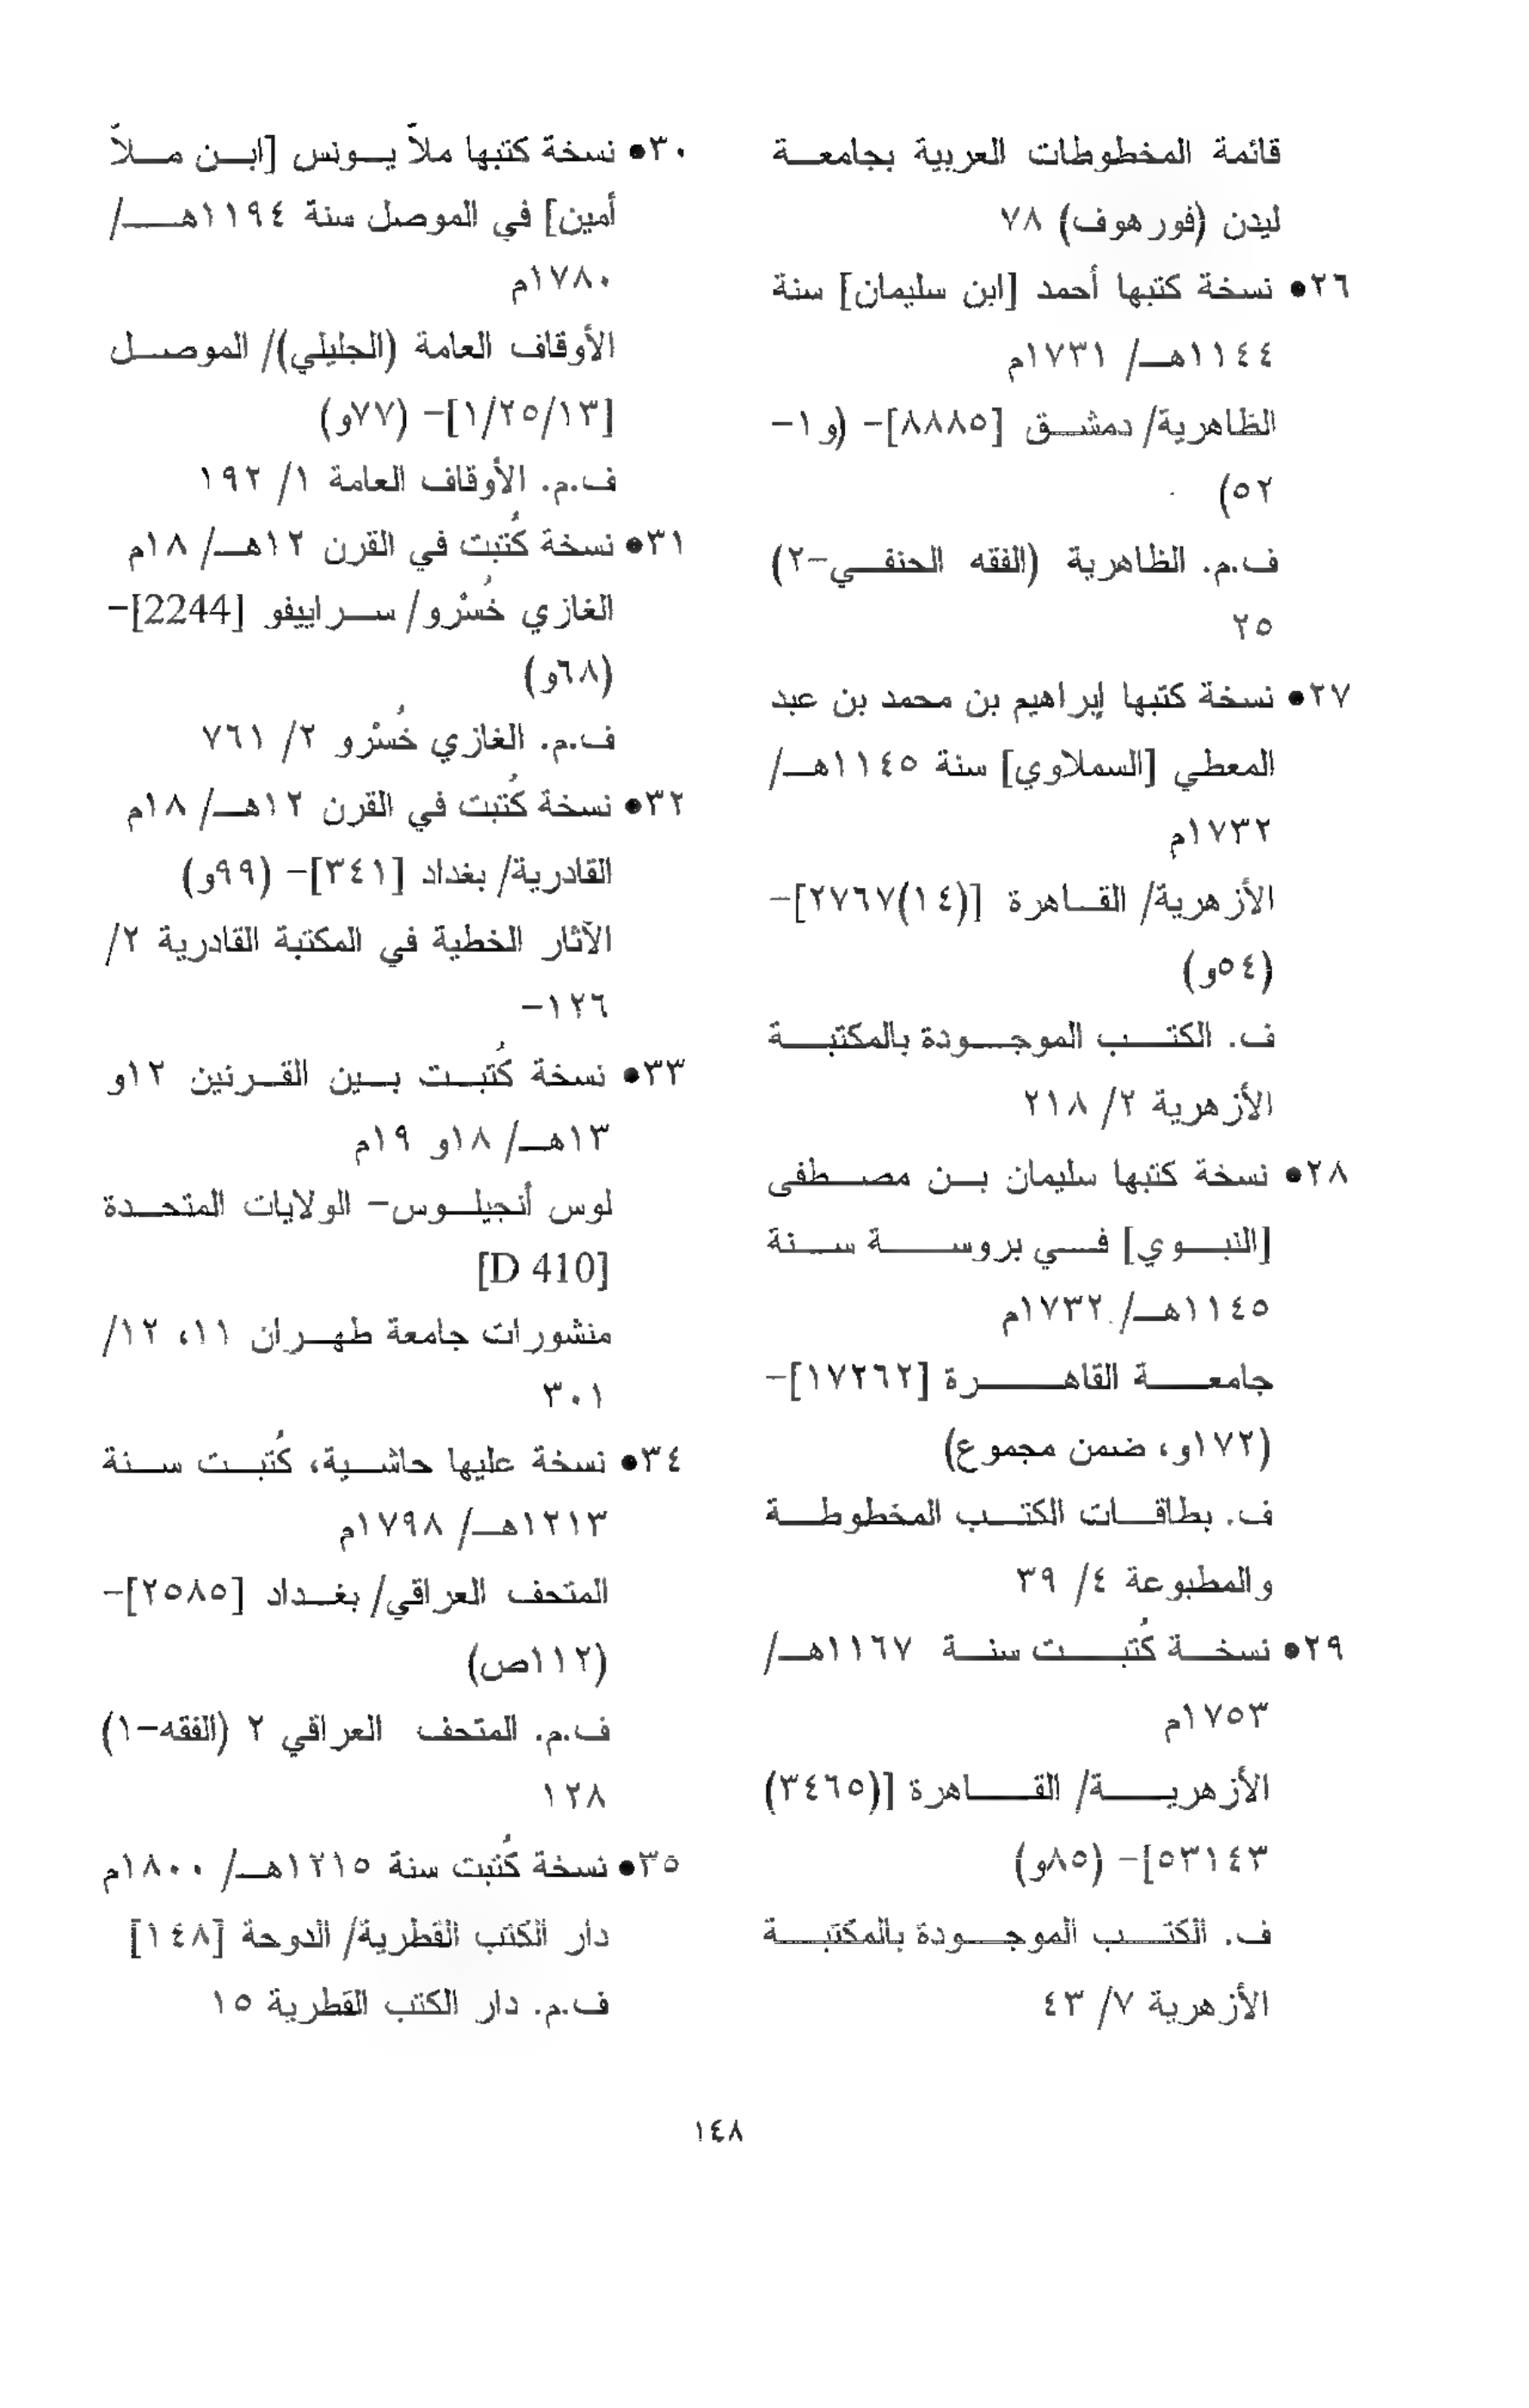 قائمة المخطوطات العربية بجامعة
ليدن (فورهوف) ٧٨
٢٦• نسخة كتبها أحمد [ابن سليمان] سنة
١١٤٤هـ/ ١٧٣١م
الظاهرية/ دمشق [٨٨٨٥]- (و١-
٥٢)
ف.م. الظاهرية (الفقه الحنفي-٢)
٢٥
٢٧• نسخة كتبها إبراهيم بن محمد بن عبد
المعطي [السملاوي] سنة ١١٤٥هـ/
١٧٣٢م
الأزهرية/ القاهرة [(١٤)٢٧٦٧]-
(٥٤و)
ف. الكتب الموجودة بالمكتبة
الأزهرية ٢/ ٢١٨
٢٨• نسخة كتبها سليمان بن مصطفى
[النبوي] في بروسة سنة
١١٤٥هـ/ ١٧٣٢م
جامعة القاهرة [١٧٢٦٢]-
(١٧٢و، ضمن مجموع)
ف. بطاقات الكتب المخطوطة
والمطبوعة ٤/ ٣٩
٢٩• نسخة كُتبت سنة ١١٦٧هـ/
١٧٥٣م
الأزهرية/ القاهرة [(٣٤٦٥)
٥٣١٤٣]- (٨٥و)
ف. الكتب الموجودة بالمكتبة
الأزهرية ٧/ ٤٣
٣٠• نسخة كتبها ملاّ يونس [ابن ملاّ
أمين] في الموصل سنة ١١٩٤هـ/
١٧٨٠م
الأوقاف العامة (الجليلي)/ الموصل
[١/٢٥/١٣]- (٧٧و)
ف.م. الأوقاف العامة ١/ ١٩٢
٣١• نسخة كُتبت في القرن ١٢هـ/ ١٨م
الغازي خُسْرو/ سراييفو [2244]-
(٦٨و)
ف.م. الغازي خُسْرو ٢/ ٧٦١
٣٢• نسخة كُتبت في القرن ١٢هـ/ ١٨م
القادرية/ بغداد [٣٤١]- (٩٩و)
الآثار الخطية في المكتبة القادرية ٢/
١٢٦-
٣٣• نسخة كُتبت بين القرنين ١٢و
١٣هـ/ ١٨و ١٩م
لوس أنجيلوس- الولايات المتحدة
[D 410]
منشورات جامعة طهران ١١، ١٢/
٣٠١
٣٤• نسخة عليها حاشية، كُتبت سنة
١٢١٣هـ/ ١٧٩٨م
المتحف العراقي/ بغداد [٢٥٨٥]-
(١١٢ص)
ف.م. المتحف العراقي ٢ (الفقه-١)
١٢٨
٣٥• نسخة كُتبت سنة ١٢١٥هـ/ ١٨٠٠م
دار الكتب القطرية/ الدوحة [١٤٨]
ف.م. دار الكتب القطرية ١٥
١٤٨